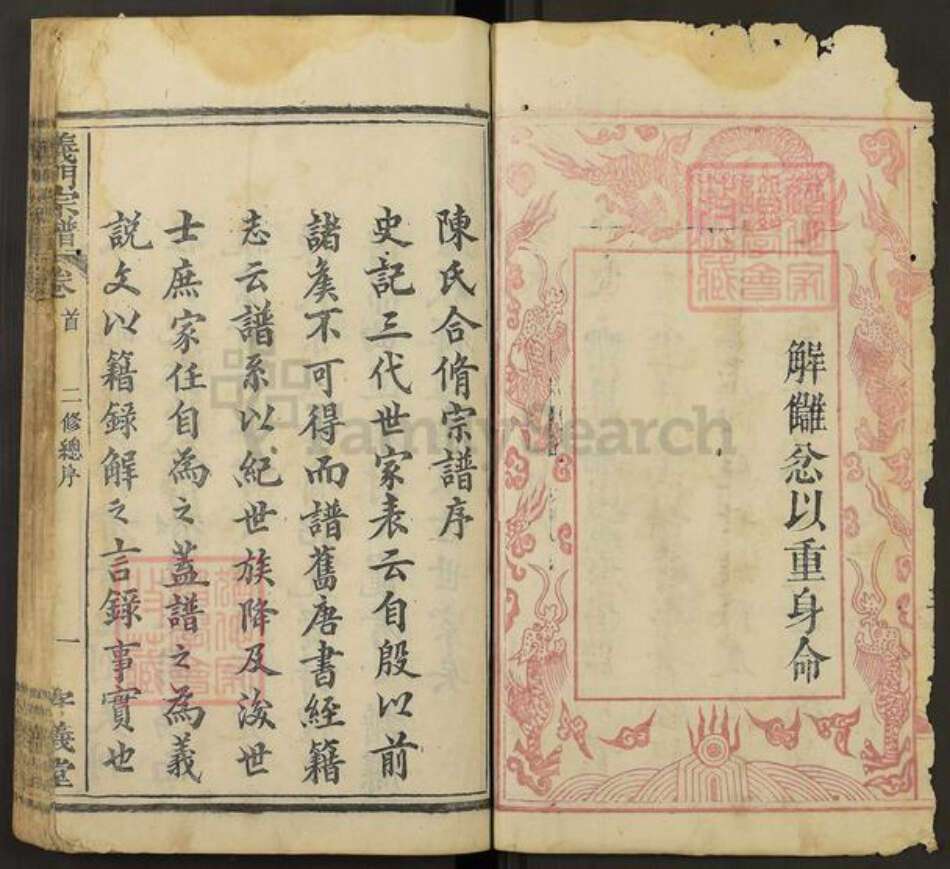 解讎忿以重身命
陳氏合脩宗譜序
史記三代世家表云自殷以前
諸矦不可得而譜舊唐書經籍
志云譜系以紀世族降及後世
士庶家任自為之蓋譜之為義
說文以籍錄解之言錄事實也
義門宗譜
卷首
二修總序
一
孝義堂
FamilySearch